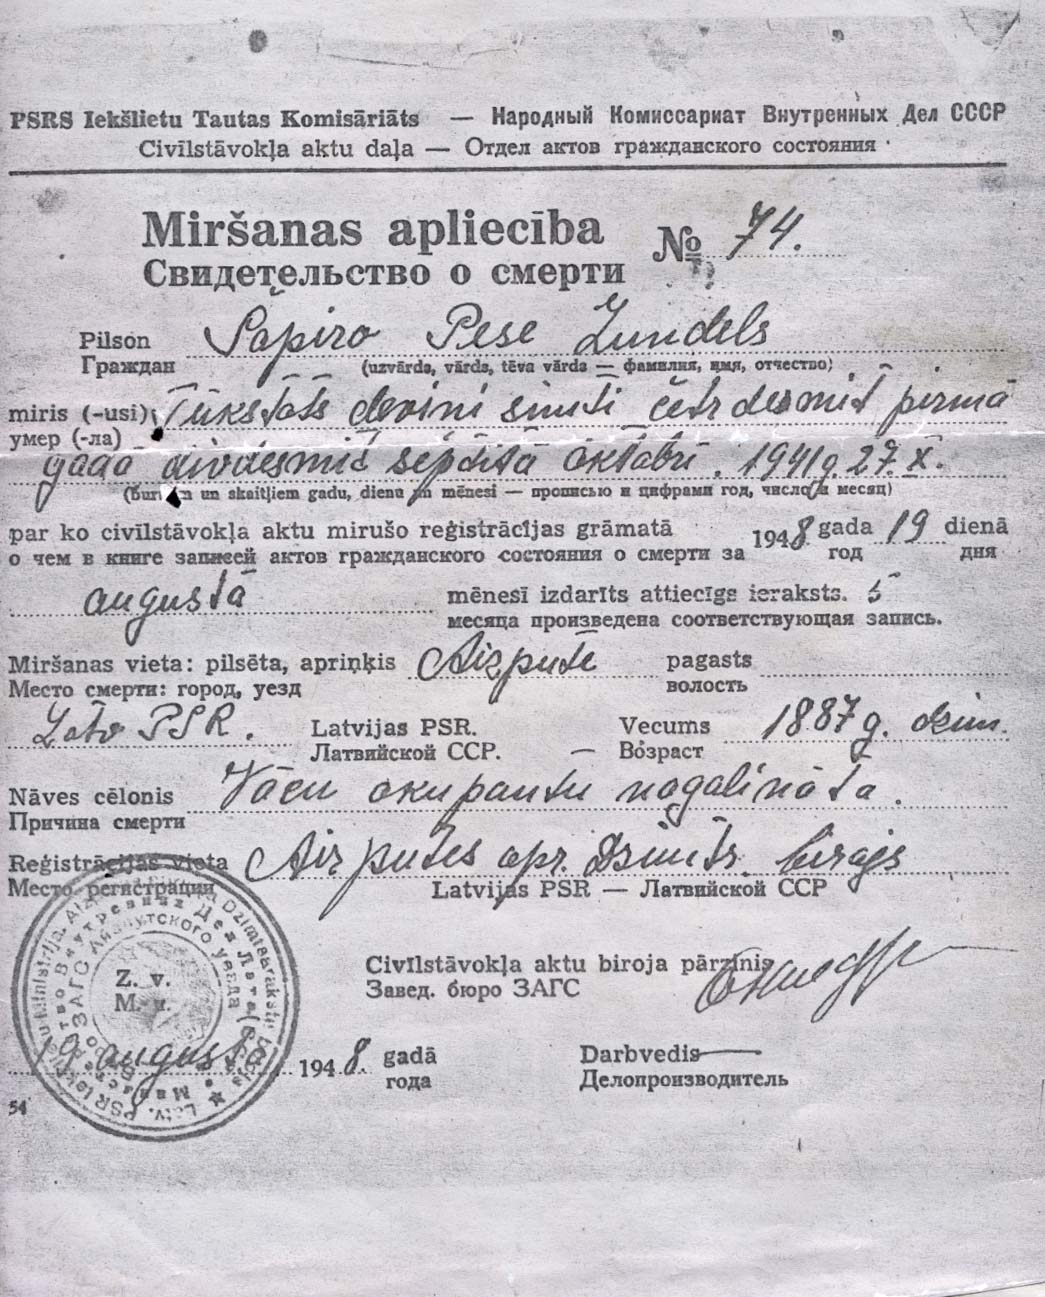 PSRS Iekšlietu Tautas Komisāriāts — Народный Комиссариат Внутренных Дел СССР
Civīlstāvokļa aktu daļa — Отдел актов гражданского состояния
Miršanas apliecība № 74.
Свидетельство о смерти
Pilson Šapiro Pese Zundels
Граждан (uzvārds, vārds, tēva vārds — фамилия, имя, отчество)
miris (-usi) Tūkstots deviņi simti četrdesmit pirmā
умер (-ла)
gada divdesmit septītā oktobrī. 1941g. 27. X.
(burtiem un skaitļiem gadu, diena un mēnesi — прописью и цифрами год, число и месяц)
par ko civīlstāvokļa aktu mirušo reģistrācijas grāmatā 1948 gada 19 dienā
о чем в книге записей актов гражданского состояния о смерти за год дня
augustā mēnesī izdarīts attiecīgs ieraksts. 5
месяца произведена соответствующая запись.
Miršanas vieta: pilsēta, apriņķis Aizpute pagasts
Место смерти: город, уезд волость
Latv PSR. Latvijas PSR. Vecums 1887 g. dzim.
Латвийской ССР. — Возраст
Nāves cēlonis Vācu okupantu nogalināta.
Причина смерти
Reģistrācijas vieta Aizputes apr. Dzimts. birojs
Место регистрации Latvijas PSR — Латвийской ССР
Z. v.
М. п.
Civīlstāvokļa aktu biroja pārzinis
Завед. бюро ЗАГС
19 augustā 1948. gadā Darbvedis —
года Делопроизводитель
54